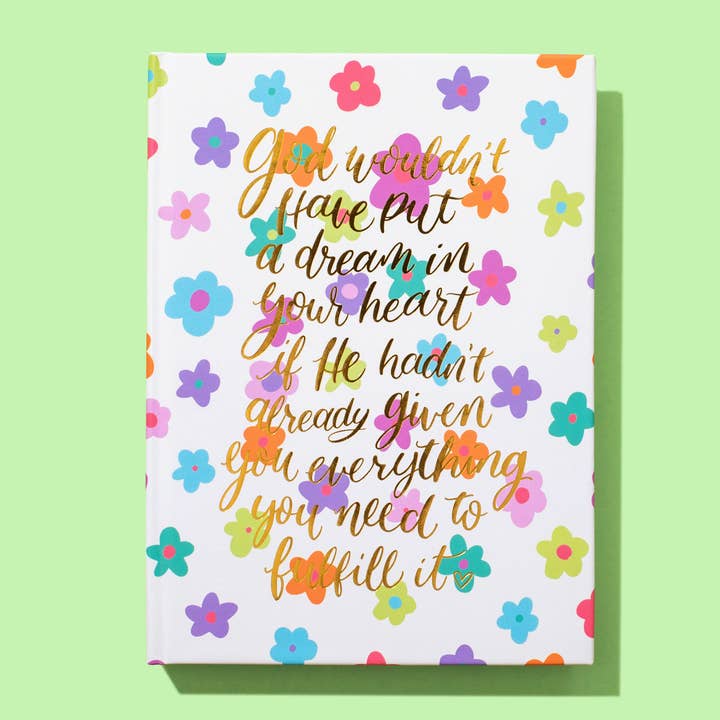 God wouldn't
Have put
a dream in
your heart
if He hadn't
already given
you everything
you need to
fulfill it